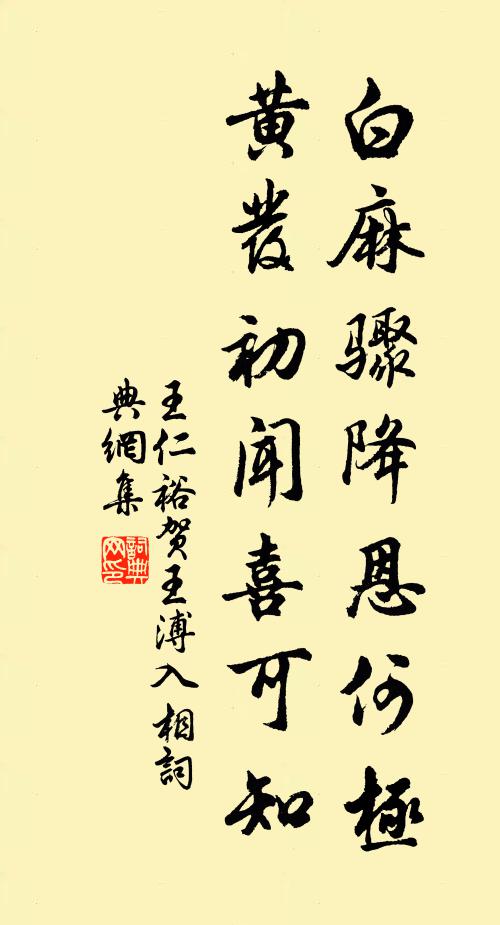 白麻驟降恩何極
黃發初聞喜可知
王仁裕賀王溥入相詞
典網集
詞典
网印